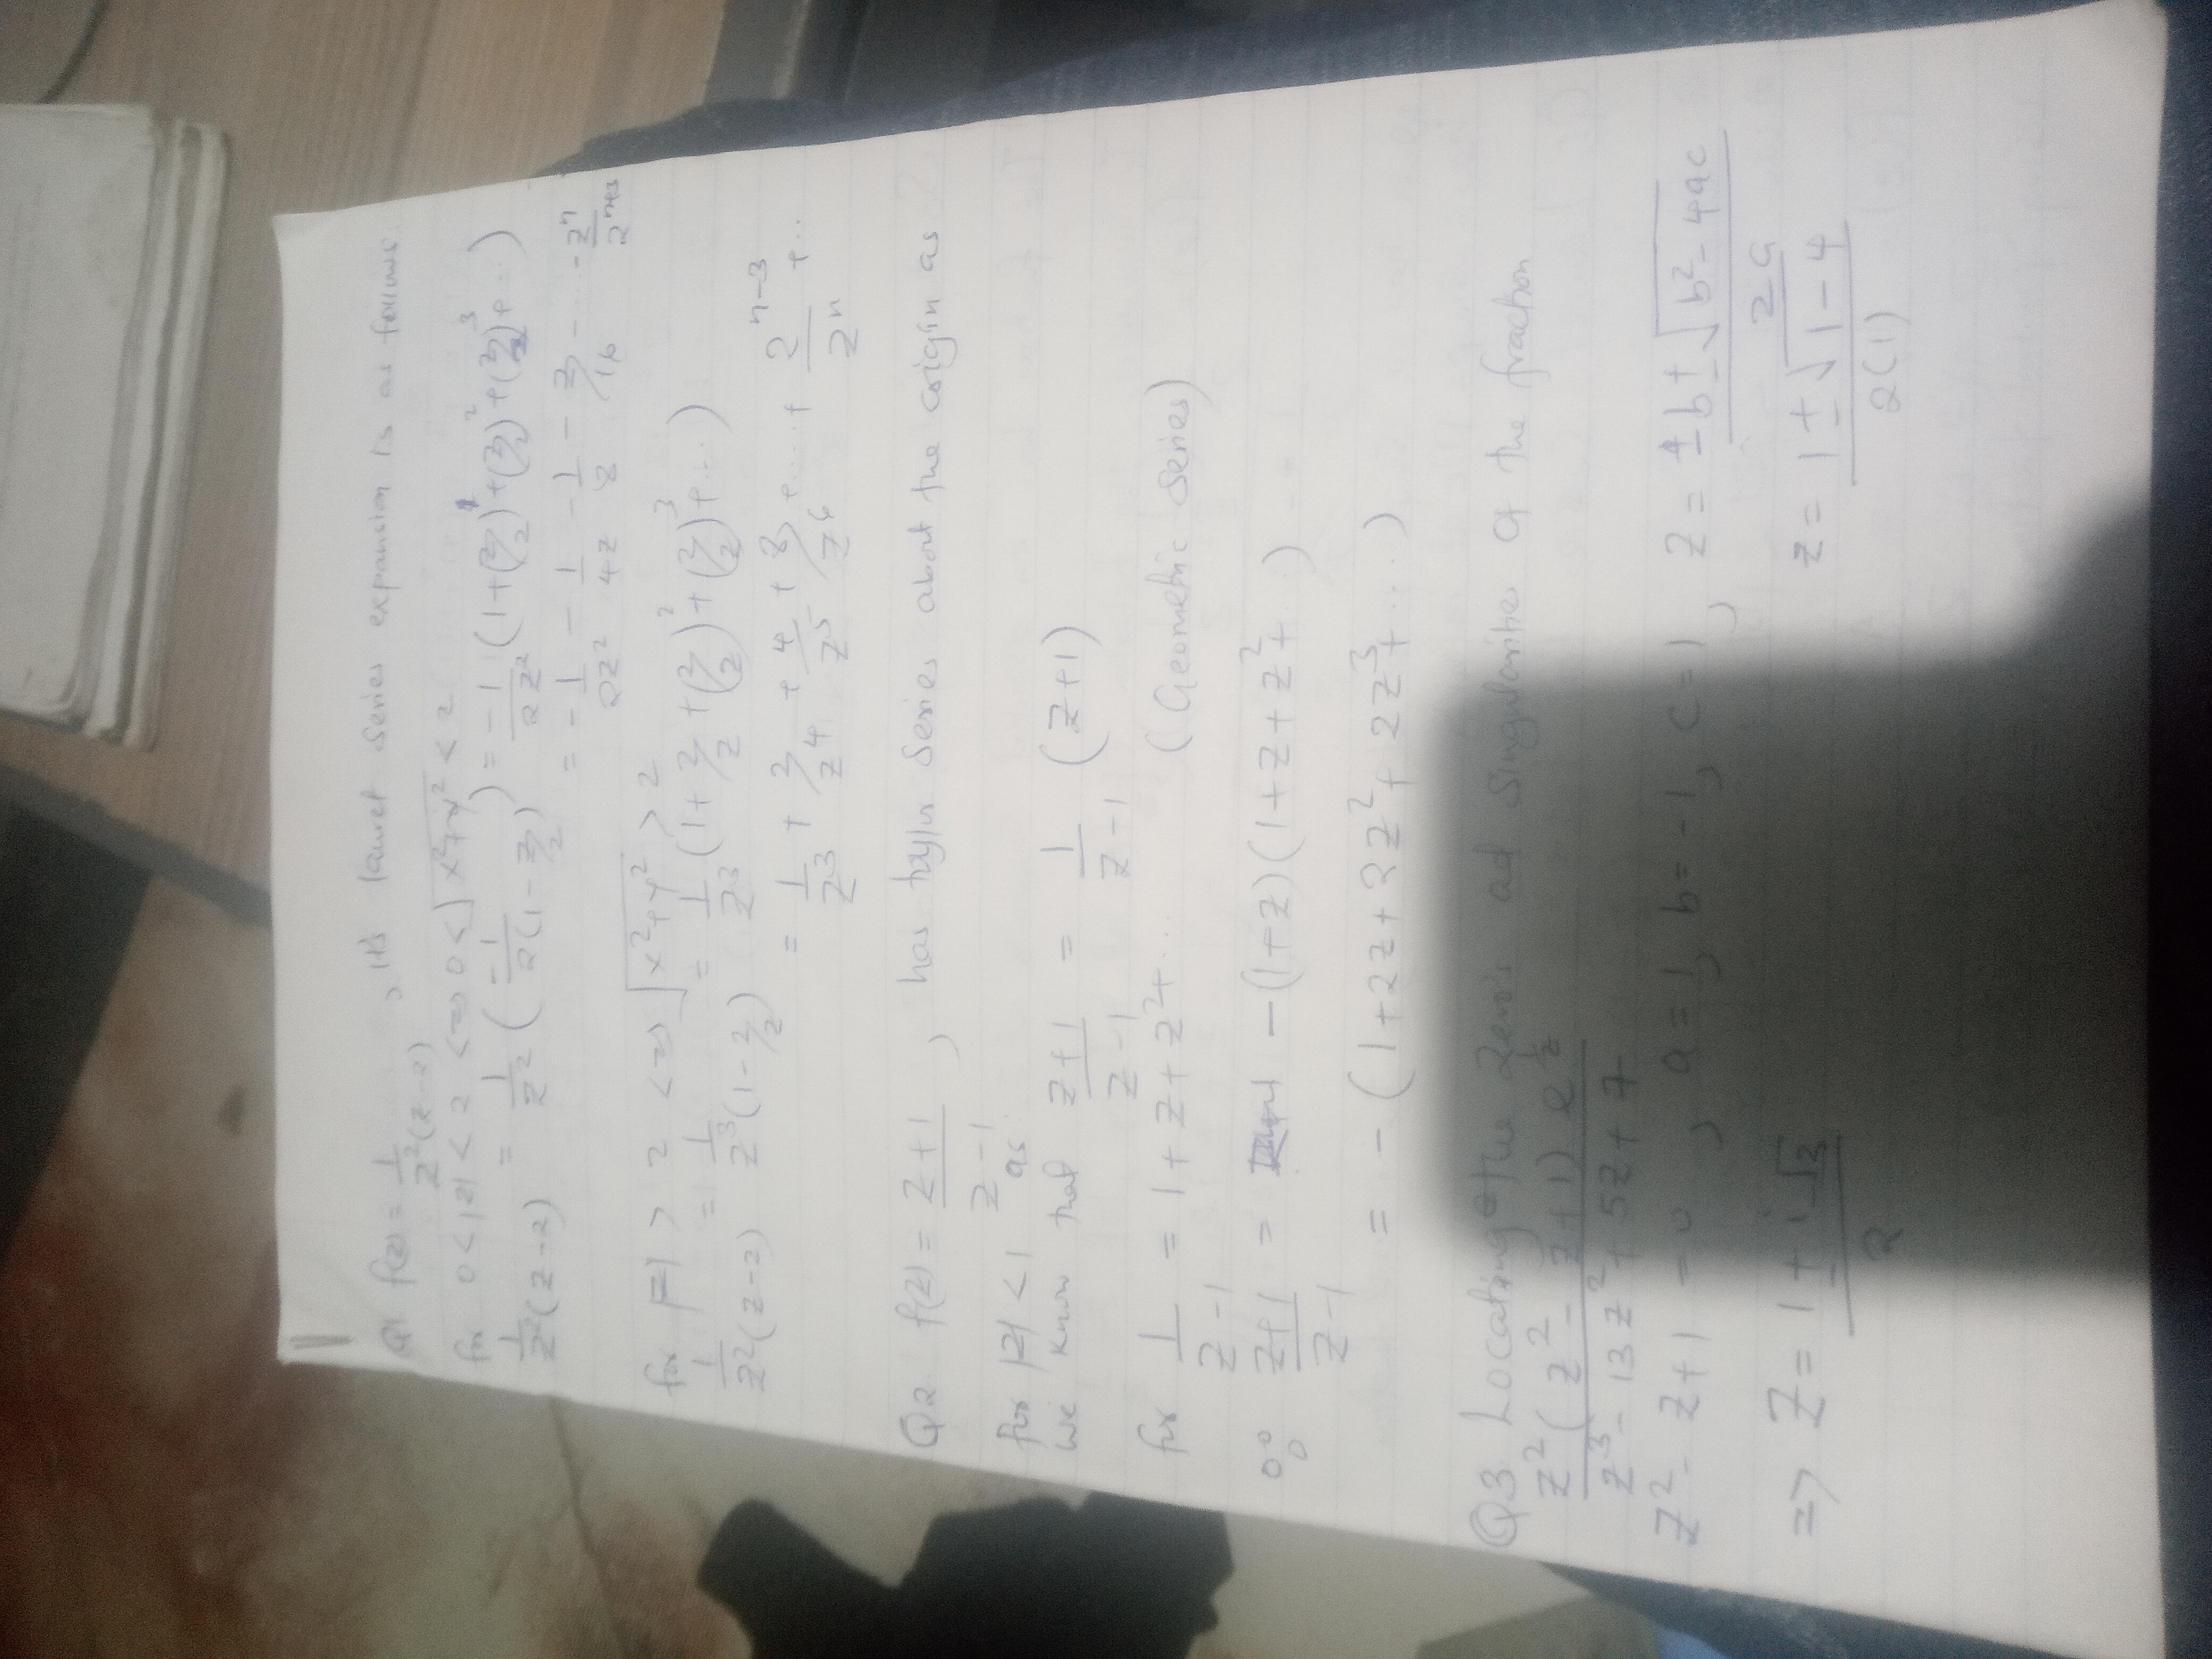 Q1 f(z) = 1/z²(z-2) , it's lauret series expansion is as follows
for 0 < |z| < 2 <=> 0 < √x²+y² < 2
1/z²(z-2) = 1/z² (-1/2(1-z/2)) = -1/2z² (1+(z/2)¹+(z/2)²+(z/2)³+...)
= -1/2z² - 1/4z - 1/8 - z/16 - ... - zⁿ/2ⁿ⁺³
for |z| > 2 <=> √x²+y² > 2
1/z²(z-2) = 1/z³(1-2/z) = 1/z³ (1+2/z+(2/z)²+(2/z)³+...)
= 1/z³ + 2/z⁴ + 4/z⁵ + 8/z⁶ +....+ 2ⁿ⁻³/zⁿ +..
Q2 f(z) = z+1/z-1 , has taylor series about the origin as
for |z| < 1 as
we know that z+1/z-1 = 1/z-1 (z+1)
for 1/z-1 = 1+z+z²+... (Geometric series)
∴ z+1/z-1 = -(1+z)(1+z+z²+...)
= -(1+2z+2z²+2z³+...)
Q3 Locating the Zero's ad singularities of the fraction
z²(z²-z+1) e^1/z / z³-13z²+5z+7
z²-z+1 = 0 , a=1, b=-1, c=1, z = ±b±√b²-4ac/2a
=> z = 1±i√3/2 z = 1±√1-4/2(1)